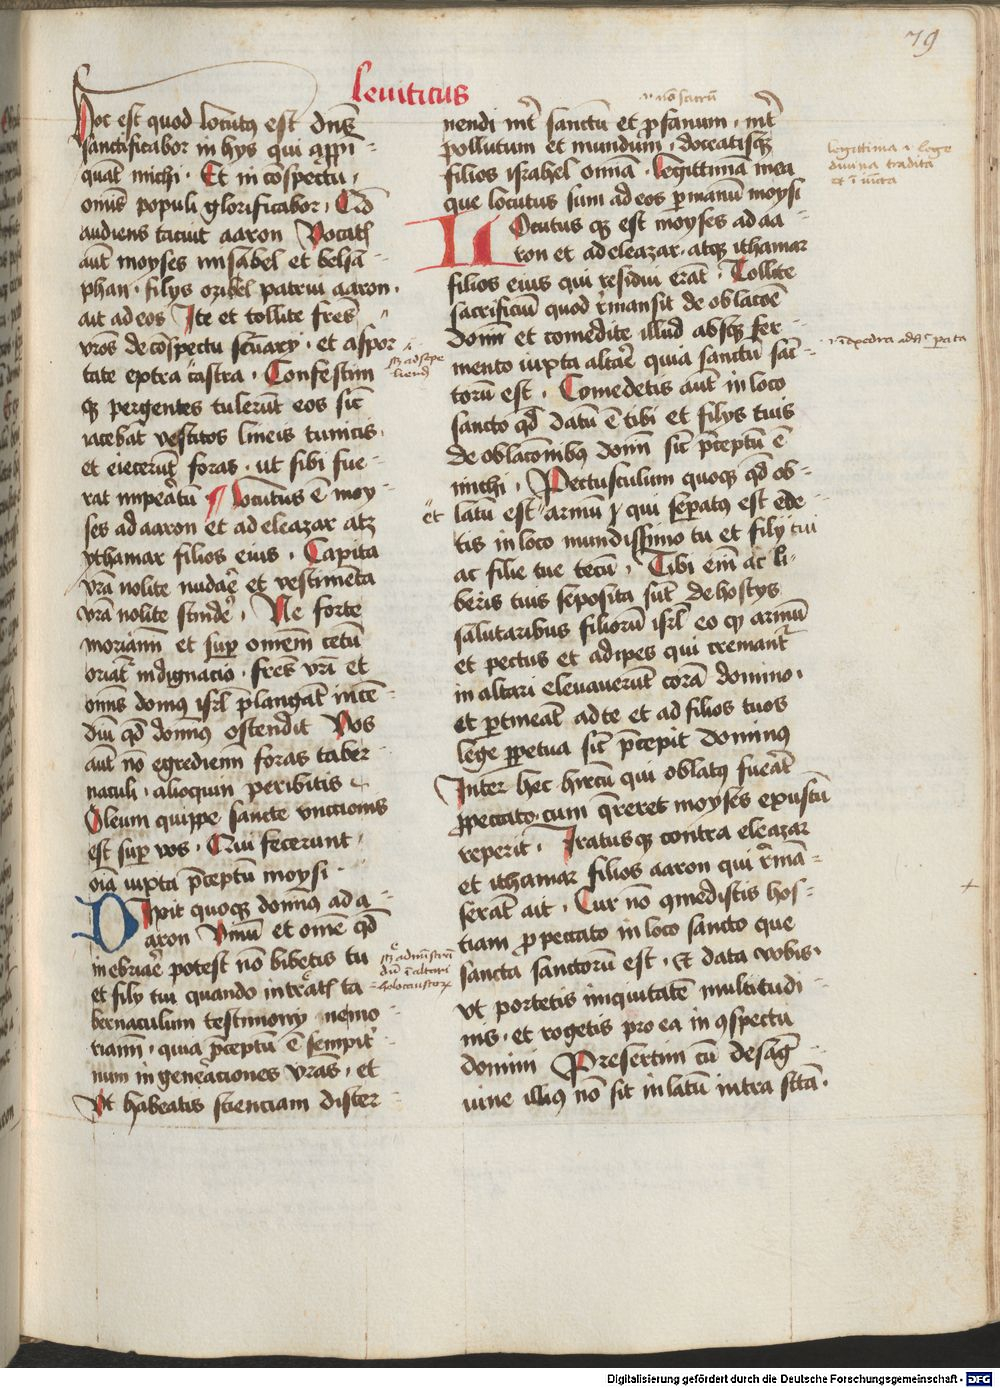 79
Leuiticus
Hoc est quod locutꝯ est dn̄s
sanctificabor in hys qui aꝓpin̄-
quāt michi . Et in cōspectu
omīs populi glorificabor . Qd̄
audiens tacuit aaron Vocatꝭ
aūt moyses misahel et helsa-
phan . filys oziħel patrui aaron .
ait ad eos Ite et tollite fr̄es
vr̄os de cōspectu scūary . et aspor-
tate extra castra . Confestim
qꝫ pergentes tulerūt eos sic̄
iacebāt vestitos lineis tunicis
et eiecerūt foras . ut sibi fue-
rat imperatū Locutus ē moy-
ses ad aaron et ad eleazar atqꝫ
ythamar filios eius . Capita
vr̄a nolite nudare et vestimēta
vr̄a nolite scindere . Ne forte
moriamī et sup omnem cetū
oriat̄ indignacio . fr̄es vr̄i et
om̄is domus isrl̄ plangāt incē-
diū qd̄ domīnꝯ ostendit Vos
aūt nō egrediemī foras taber-
naculi . alioquin peribitis
Oleum quippe sancte vnctionis
est sup vos . Qui fecerunt
oīa iuxta p̄ceptū moysi .
Dixit quoqꝫ domīnꝯ ad a-
aron Vinū et omē qd̄
inebriare potest nō bibetis tu
et fily tui quando intratꝭ ta-
bernaculum testimony ne mo-
riamī . quia p̄ceptū ē sempit̄-
num in generaciones vr̄as . et
Vt habeatis scienciam discer-
scꝫ ad sepe
liend̄
scꝫ administrā
dū ī altari
holocaustorꝫ
nō sacrū
nendi int̄ sanctū et ꝓfanum . int̄
pollutum et mundum . doceatisqꝫ
filios israhel omnia . legittima mea
que locutus sum ad eos ꝑ manum moysi
Locutus qꝫ est moyses ad aa-
ron et ad eleazar . atqꝫ ithamar
filios eius qui residui erāt . Tollite
sacrificiū quod r̄mansit de oblacōe
Domī et comedite illud absqꝫ fer-
mento iuxta altare quia sanctū sāc-
torū est . Comedetis aūt in loco
sancto qd̄ datū ē tibi et filys tuis
de oblacōnibꝯ domī sic̄ p̄ceptū ē
michi . Pectusculum quoqꝫ qd̄ ob-
latū est et armū qui sepatꝯ est ede-
tis in loco mundissimo tu et fily tui
ac filie tue tecū . Tibi eīm ac li-
beris tuis seposita sūt de hostys
salutaribus filiorū isrl̄ eo qꝫ armū
et pectus et adipes qui cremant̄
in altari eleuauerūt corā domino .
et ꝑtineāt ad te et ad filios tuos
lege ꝑpetua sic̄ p̄cepit dominꝯ
Inter hec hircū qui oblatꝯ fuerat
ꝓ peccato . cum q̄reret moyses exustū
reperit . Iratusqꝫ contra eleazar
et ithamar filios aaron qui r̄mā-
serāt ait . Cur nō ꝯmedistis hos-
tiam ꝓ peccato in loco sancto que
sancta sanctorū est . et data vobis .
vt portetis iniquitatē multitudi-
nis . et rogetis pro ea in ꝯspectu
domini Presertim cū de sanḡ-
uine illiꝯ nō sit inlatū intra sctā .
legittima .i. lege
diuina tradita
Digitalisierung gefördert durch die Deutsche Forschungsgemeinschaft - DFG